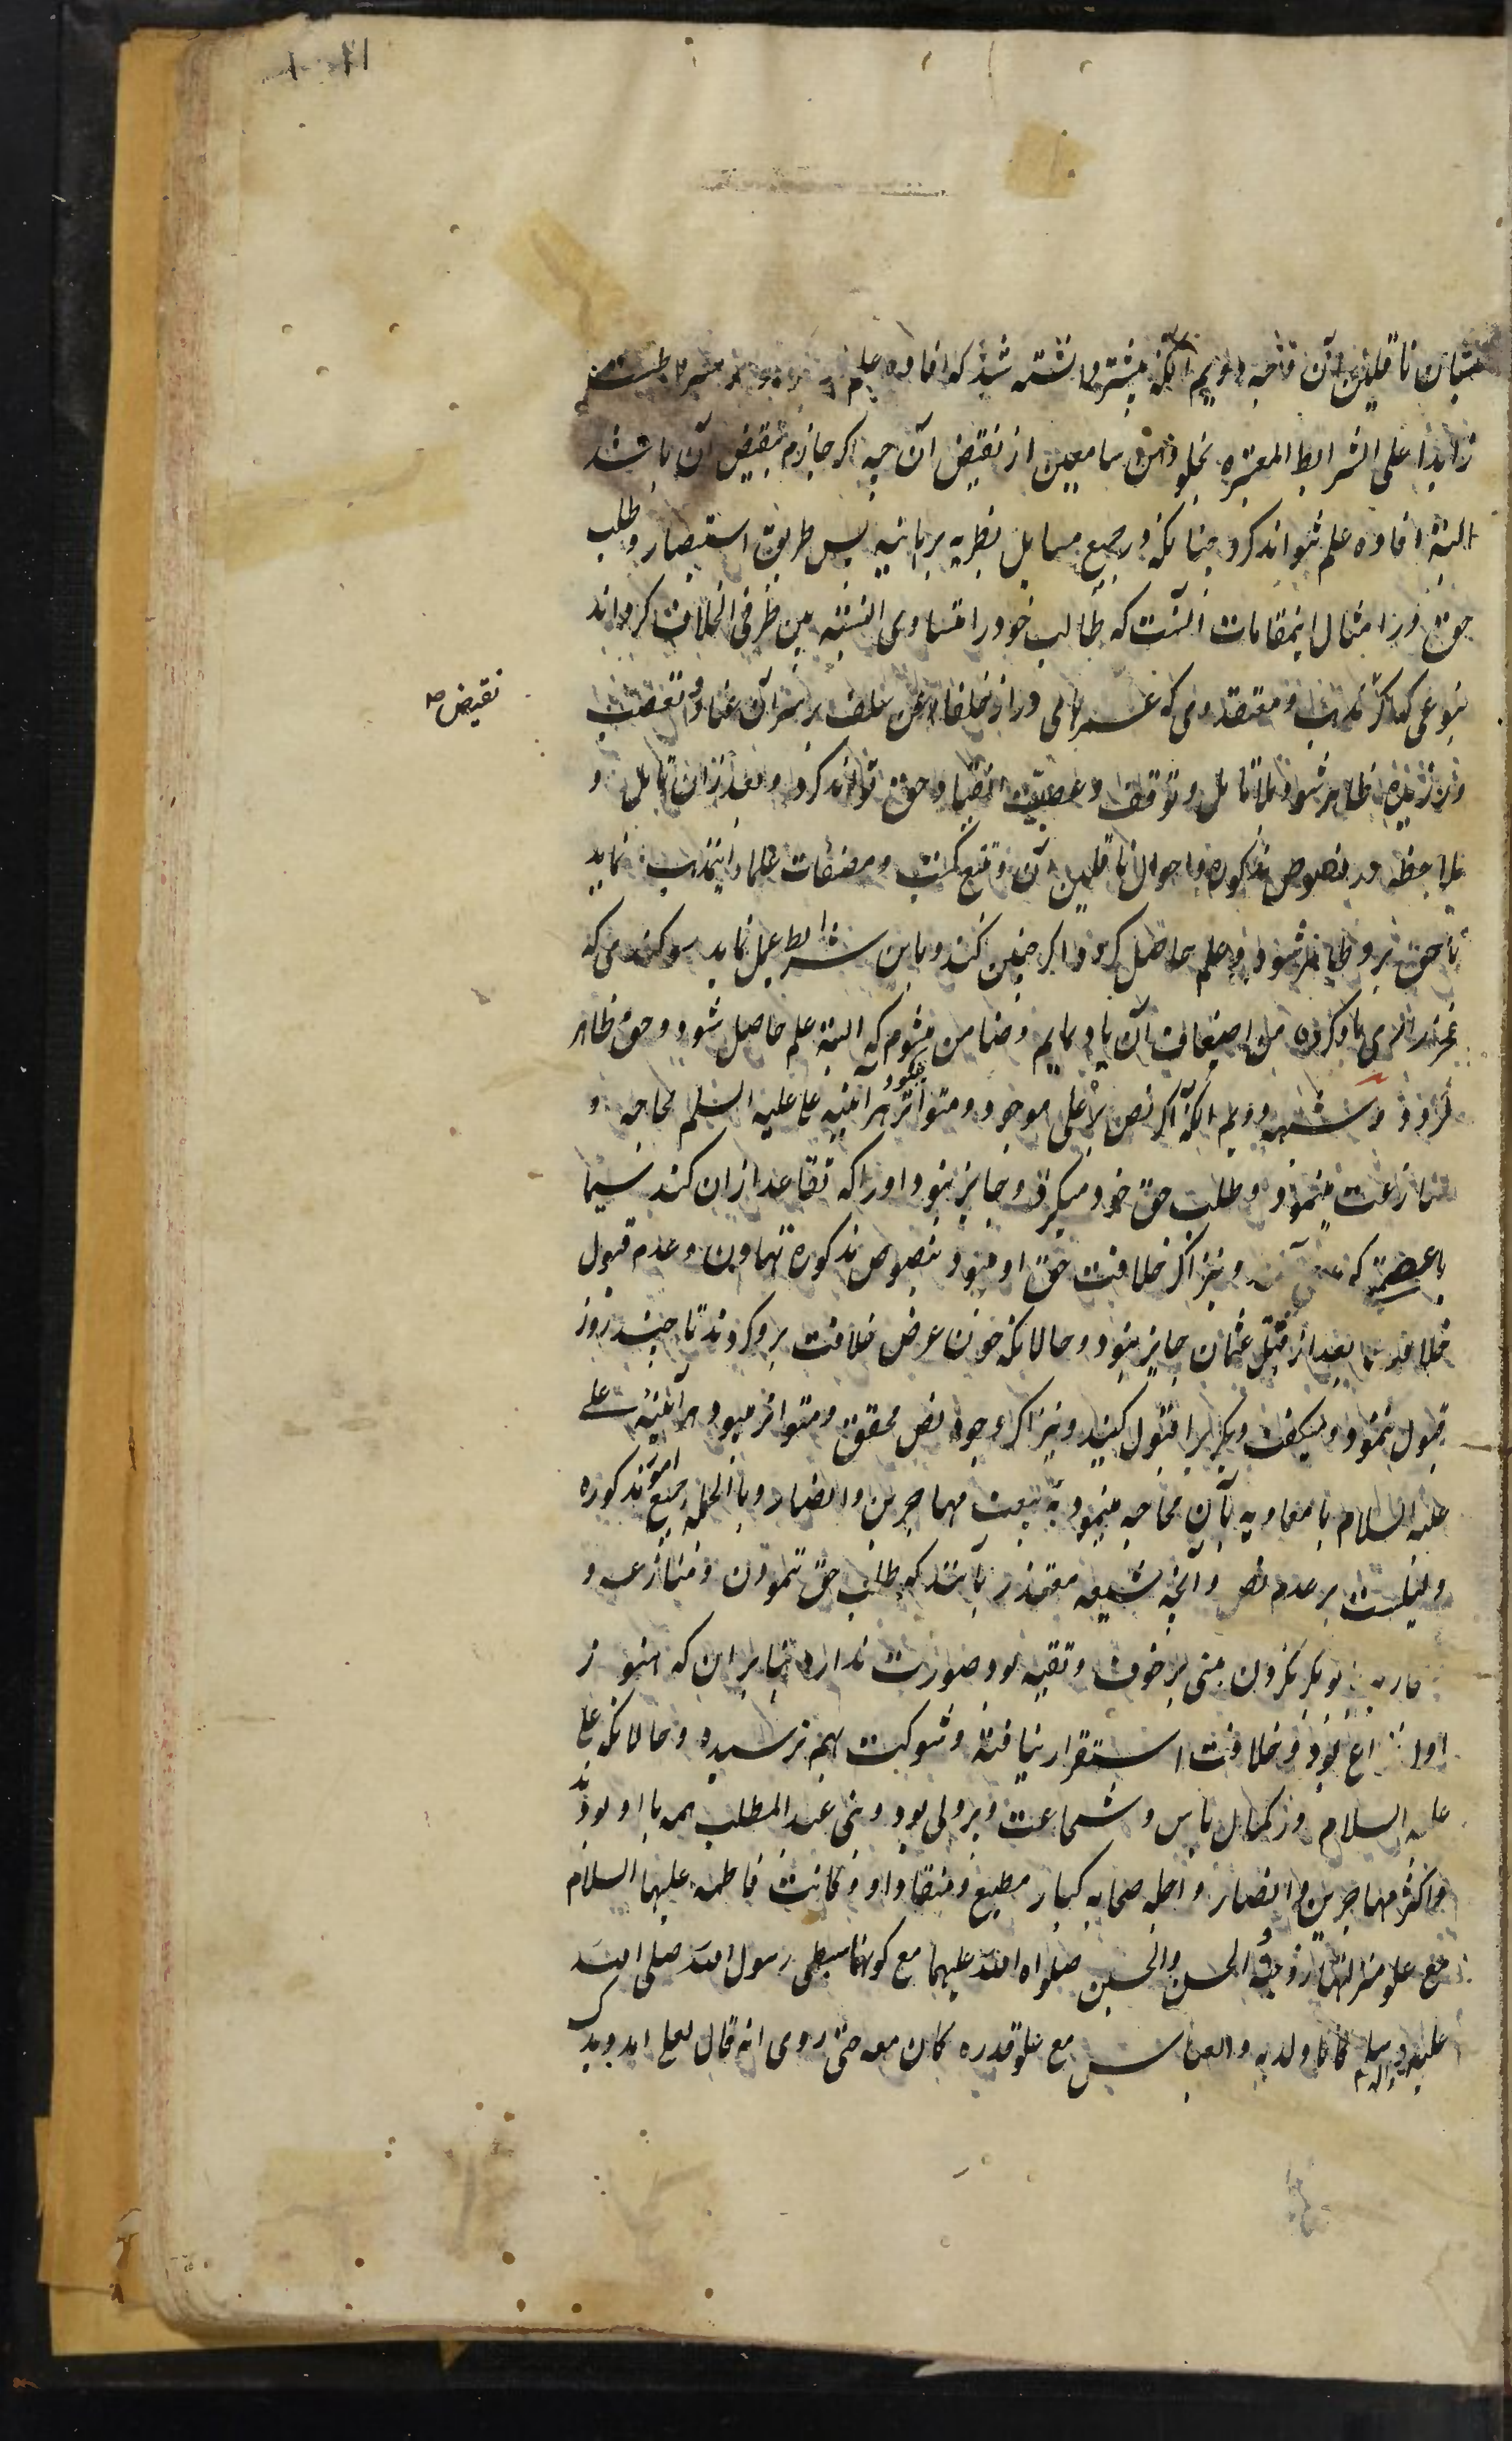 ناقلین آن وجه دویم آنکه پیشتر دانسته شد که افاده علم
زایدا علی الشرایط المعتبره بخلو ذهن سامعین از نقیض آن چه اگر جازم بنقیض آن باشد
البته افاده علم نتواند کرد چنانکه در جمیع مسایل نظریه برهانیه پس طریق استبصار و طلب
حق در امثال اینمقامات آنست که طالب خود را متساوی النسبه بین طرفی الخلاف گرداند
بنوعی که اگر مذهب و معتقدی که عمرهای دراز خلفا عن سلف بر سر آن عناد و تعصب
ورزیده ظاهر شود بلا تامل و توقف و عصبیت انقیاد حق تواند کرد و بعد از آن تامل و
ملاحظه در نصوص مذکوره و احوال ناقلین آن و تتبع کتب و مصنفات علماء اینمذهب نماید
تا حق برو ظاهر شود و علم حاصل گردد اگر چنین کند و باین شرایط عمل نماید سوگندی که
یاد کرده من اضعاف آن یاد نمایم و ضامن میشوم که البته علم حاصل شود و حق ظاهر
گردد و شبهه دویم آنکه اگر نص بر علی موجود و متواتر میبود هر آینه علی علیه السلم محاجه و
منازعت مینمود و طلب حق خود میکرد و جایز نبود او را که تقاعد از آن کند سیما
با عصمتی که ونیز اگر خلافت حق او میبود بنصوص مذکوره تهاون و عدم قبول
خلافت بعد از قتل عثمان جایز نبود و حالانکه چون عرض خلافت برو کردند تا چند روز
قبول ننمود و میگفت دیگریرا قبول کنید و نیز اگر وجود نص محقق و متواتر میبود هر آینه علی
علیه السلام با معاویه بآن محاجه مینمود نه ببیعت مهاجرین و انصار و بالجمله جمیع امور مذکوره
دلیلست بر عدم نص و آنچه شیعه معتذر باشند که طلب حق ننمودن و منازعت و
محاربه با ابوبکر نکردن مبنی بر خوف و تقیه بود صورت ندارد بنابر آن که هنوز
اول نزاع بود و خلافت استقرار نیافته و شوکت بهم نرسیده و حالانکه علی
علیه السلام در کمال باس و شجاعت و پردلی بود و بنی عبد المطلب همه با او بودند
و اکثر مهاجرین و انصار و اجله صحابه کبار مطیع و منقاد او و کانت فاطمه علیها السلام
مع علو منزلتها زوجته و الحسن والحسین صلواه الله علیهما مع کونهما سبطی رسول الله صلی الله
علیه و اله و سلم کانا ولدیه و العباس مع علو قدره کان معه حتی روی انه قال لعلی امدد یدک
نقیض صح